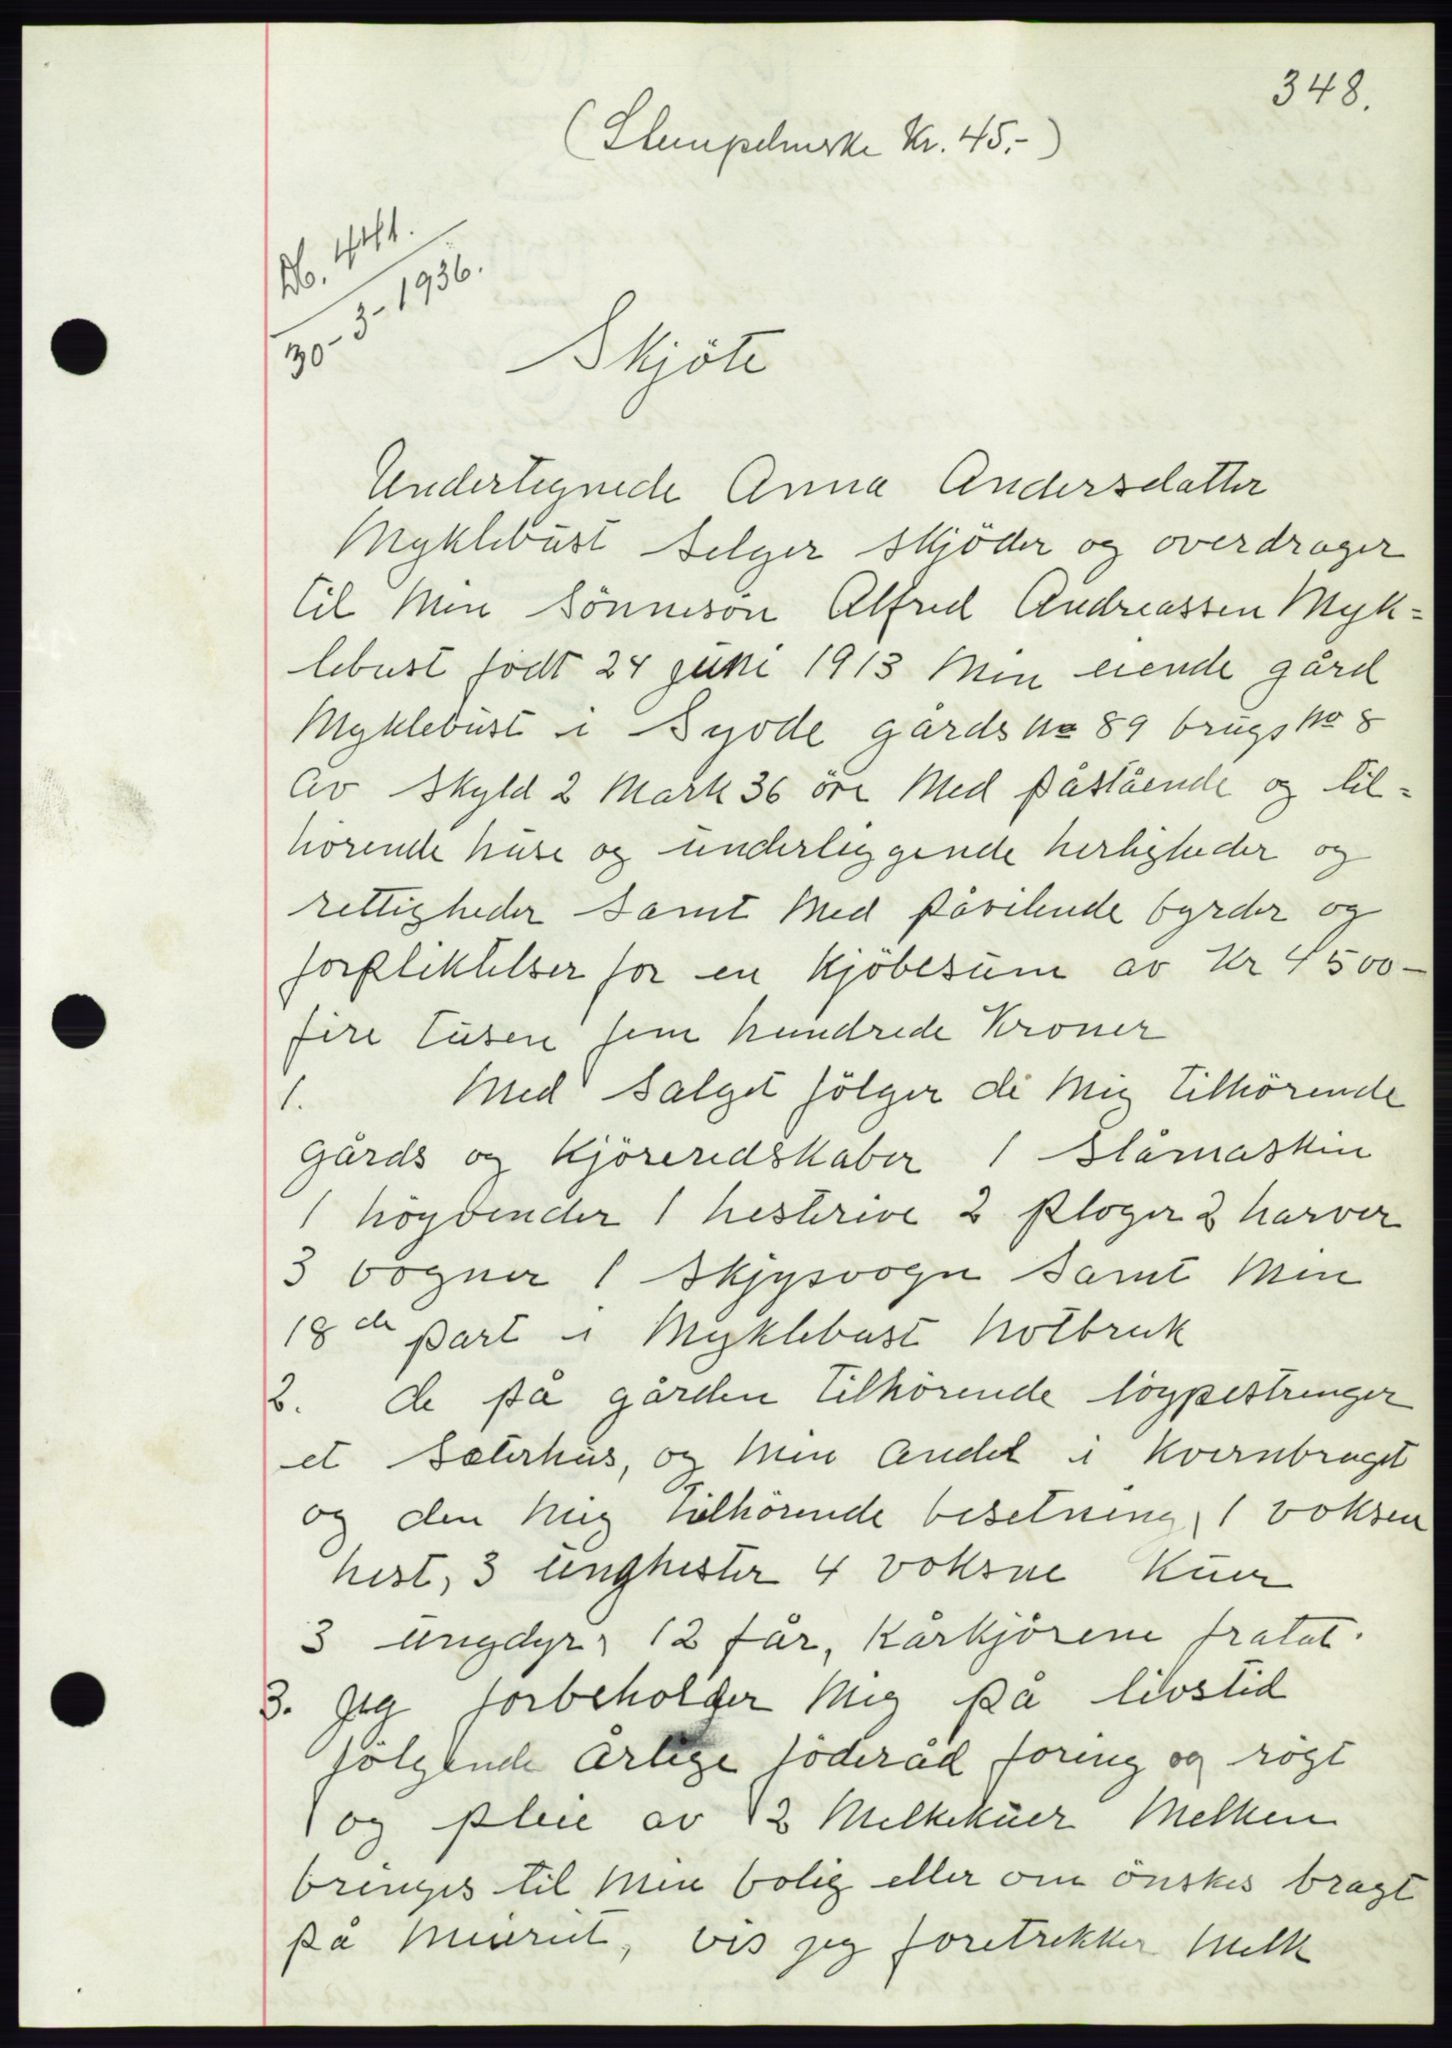 348.
(Stempelmerke Kr. 45.-)
Db. 441.
30-3-1936.
Skjöte
Undertegnede Anna Andersdatter
Myklebust selger skjöder og overdrager
til min sönnesön Alfred Andreassen Myk=
lebust födt 24 juni 1913 min eiende gård
Myklebust i Syvde gårds no 89 brugs no 8
av skyld 2 mark 36 öre med påstående og til=
hörende huse og underliggende herligheder og
rettigheder samt med påvilende byrder og
forpliktelser for en kjöbesum av kr 4500-
fire tusen fem hundrede kroner
1. Med salget fölger de mig tilhörende
gårds og kjöreredskaber 1 slåmaskin
1 höyvender 1 hesterive 2 ploger 2 harver
3 vogner 1 skjysvogn samt min
18de part i Myklebust notbruk
2. de på gården tilhörende löypestrenger
et sæterhus, og min andel i kvernbruget
og den mig tilhörende besetning, 1 voksen
hest, 3 unghester 4 voksne kuer
3 ungdyr, 12 får, kårkjörene fratat.
3. Jeg forbeholder mig på livstid
fölgende årlige föderåd foring og rögt
og pleie av 2 melkekuer melken
bringes til min bolig eller om önskes bragt
på meieriet, vis jeg foretrekker melk